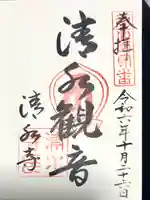 奉拝
令和六年十月二十六日
清水観音
清水寺